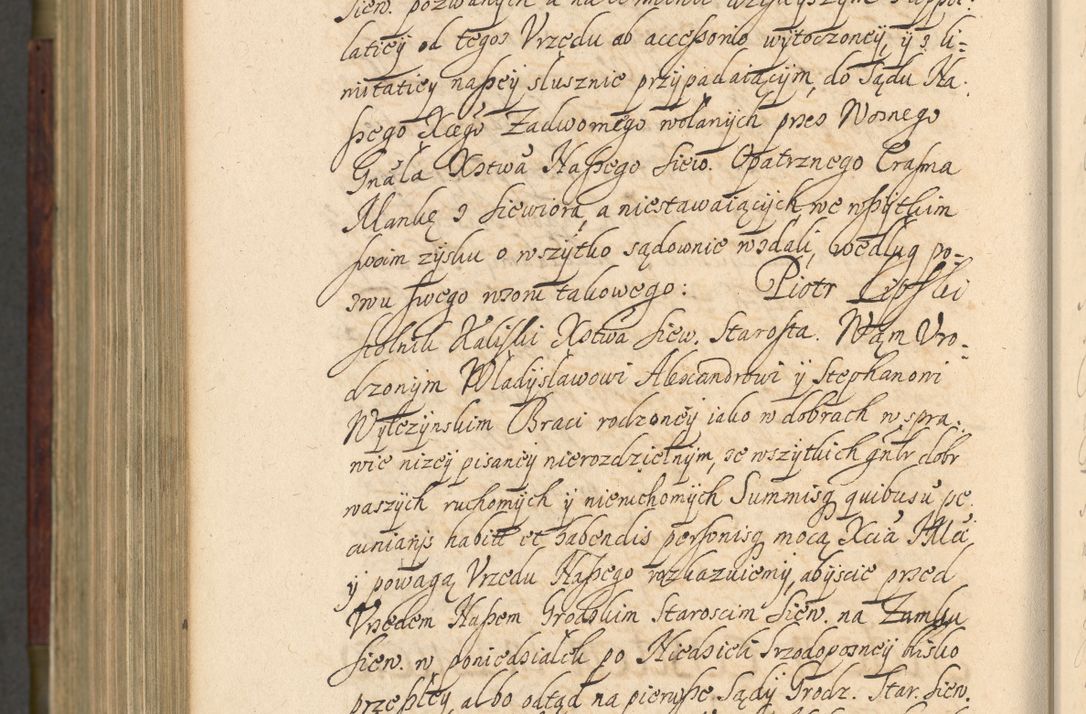 Siew. pozwanych a na terminie dzisieyszym Appel:
laticy od tegos Vrzędu ab accessorio wytoczoney, y z li-
mitaticy naszey slusznie przypadaiącym, do Sądu Na-
szego Xcego Zadwornego wolanych przes Woznego
Gnala Xstwa Naszego Siew. Opatrznego Erasma
Mankę z Siewiora, a niestawaiących, we wszytkim
swoim zysku o wszytko sądownie wzdali, według po-
zwu swego w som takowego: Piotr
Stolnik Kaliski Xstwa Siew. Starosta. Wam Vro-
dzonym Wladysławowi Alexandrowi y Stephanowi
Wylczynskim Braci rodzoney iako w dobrach w spra-
wie nizey pisaney nierozdzielnym, ze wszytkich gnlr dobr
waszych ruchomych y nieruchomych Summisq quibusuis pe
cuniarys habitt et habendis personisq mocą Xcia JMci
y powagą Vrzędu Naszego rozkazuiemy, abyscie przed
Vrzędem Naszem Grodzkim Staroscim Siew. na Zamku
Siew. w poniedzialek po Niedzieli Srzodoposney blisko
przeszłey, albo odtąd na pierwsze Sądy Grodz. Star. Siew.